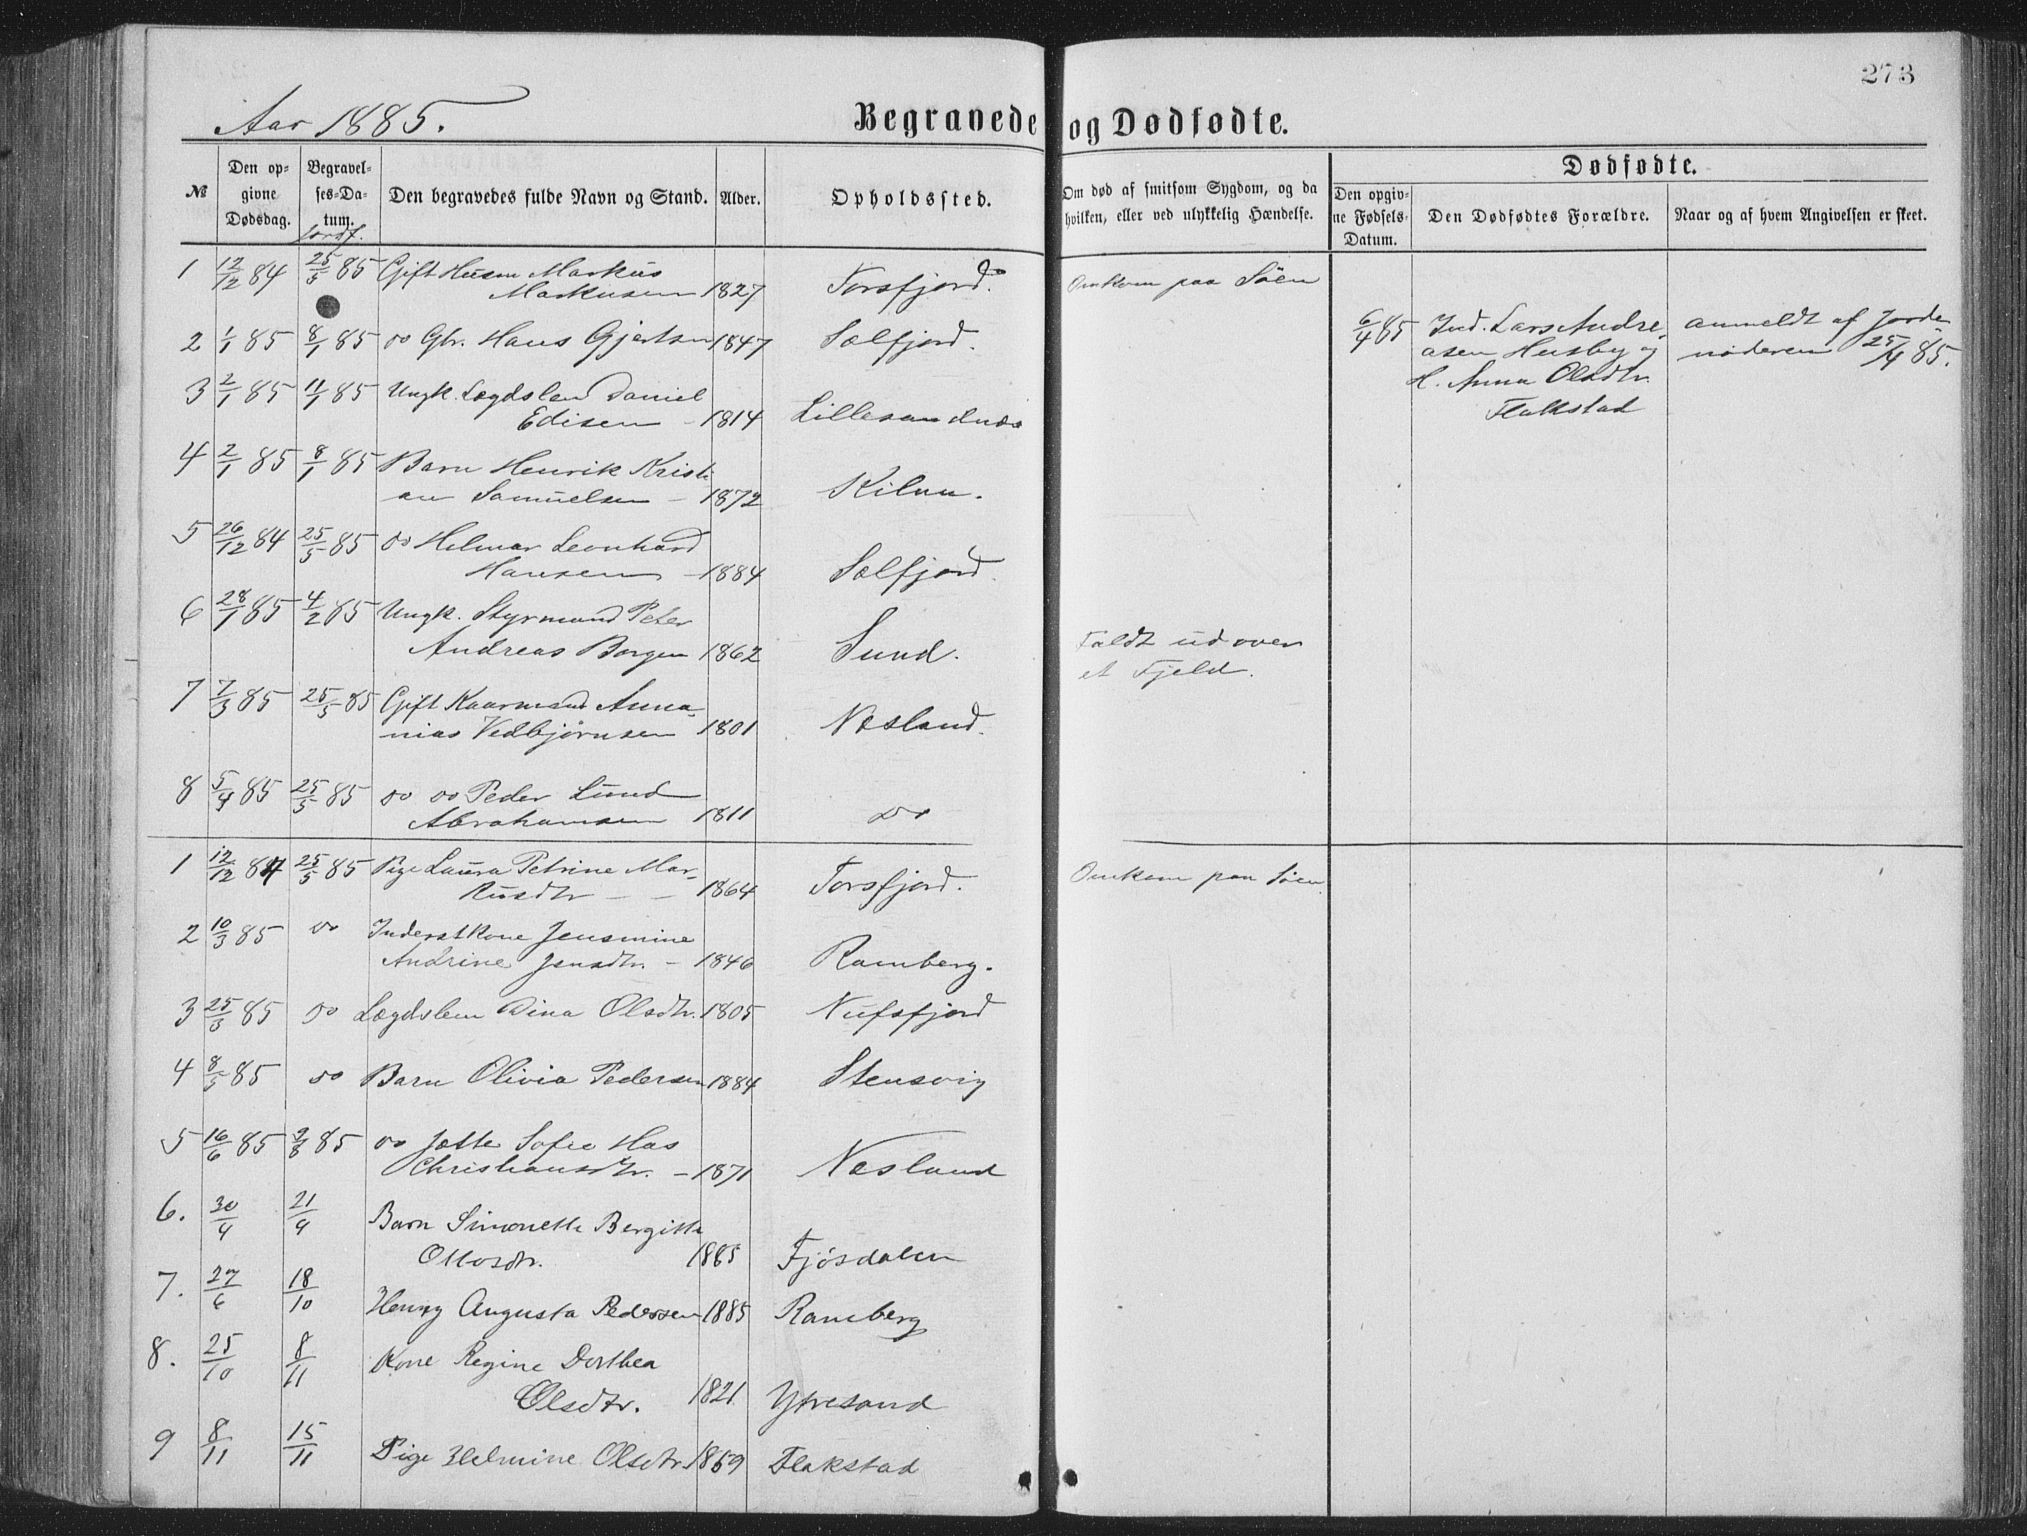 273
Aar 1885.
Begravede og Dødfødte.
№
Den opgivne Dødsdag.
Begravelses-Datum.
Jordf.
Den begravedes fulde Navn og Stand.
Alder.
Opholdssted.
Om død af smitsom Sygdom, og da hvilken, eller ved ulykkelig Hændelse.
Dødfødte.
Den opgivne Fødsels-Datum.
Den Dødfødtes Forældre.
Naar og af hvem Angivelsen er skeet.
1 12/12 84 25/5 85 Gift Husm Markus
Markusen 1827 Torsfjord. Omkom paa Söen
2 1/1 85 8/1 85 do Gbr. Hans Gjertsen 1847 Sælfjord.
6/4 85 Ind. Lars Andre-
asen Husby og
H. Anna Olsdtr.
Flakstad
anmeldt af Jorde-
moderen 25/4 85.
3 2/1 85 11/1 85 Ungk. Lægdslem Daniel
Edisen - 1814 Lillesandnes
4 2/1 85 8/1 85 Barn Henrik Kristi
an Samuelsen - 1872 Kilan.
5 26/12 84 25/5 85 do Helmar Leonhard
Hansen - 1884 Sælfjord.
6 28/1 85 4/2 85 Ungk. Styrmand Peter
Andreas Borgen 1862 Sund. Faldt ud over
et Fjeld.
7 7/3 85 25/5 85 Gift Kaarmand Anna-
nias Vedbjørnsen 1801 Næsland.
8 5/4 85 25/5 85 do do Peder Lund
Abrahamsen 1811 do
1 12/12 84 25/5 85 Pige Laura Petrine Mar-
kusdtr - - 1864 Torsfjord. Omkom paa Söen
2 10/3 85 do Inderstkone Jensmine
Andrine Jensdtr. - 1846 Ramberg.
3 25/3 85 do Lægdslem Dina Olsdtr. 1805 Nufsfjord
4 8/5 85 do Barn Olivia Pedersen 1884 Stensvig
5 16/6 85 2/8 85 do Jette Sofie Has
Christiansdtr. - 1871 Næsland
6. 30/4 21/9 Barn Simonette Bergitte
Ottosdtr. 1885 Fjösdalen
7. 27/6 18/10 Henny Augusta Pedersen 1885 Ramberg
8. 25/10 8/11 Kone Regine Dorthea
Olsdtr. 1821 Ytresand
9 8/11 15/11 Pige Helmine Olsdtr 1869 Flakstad